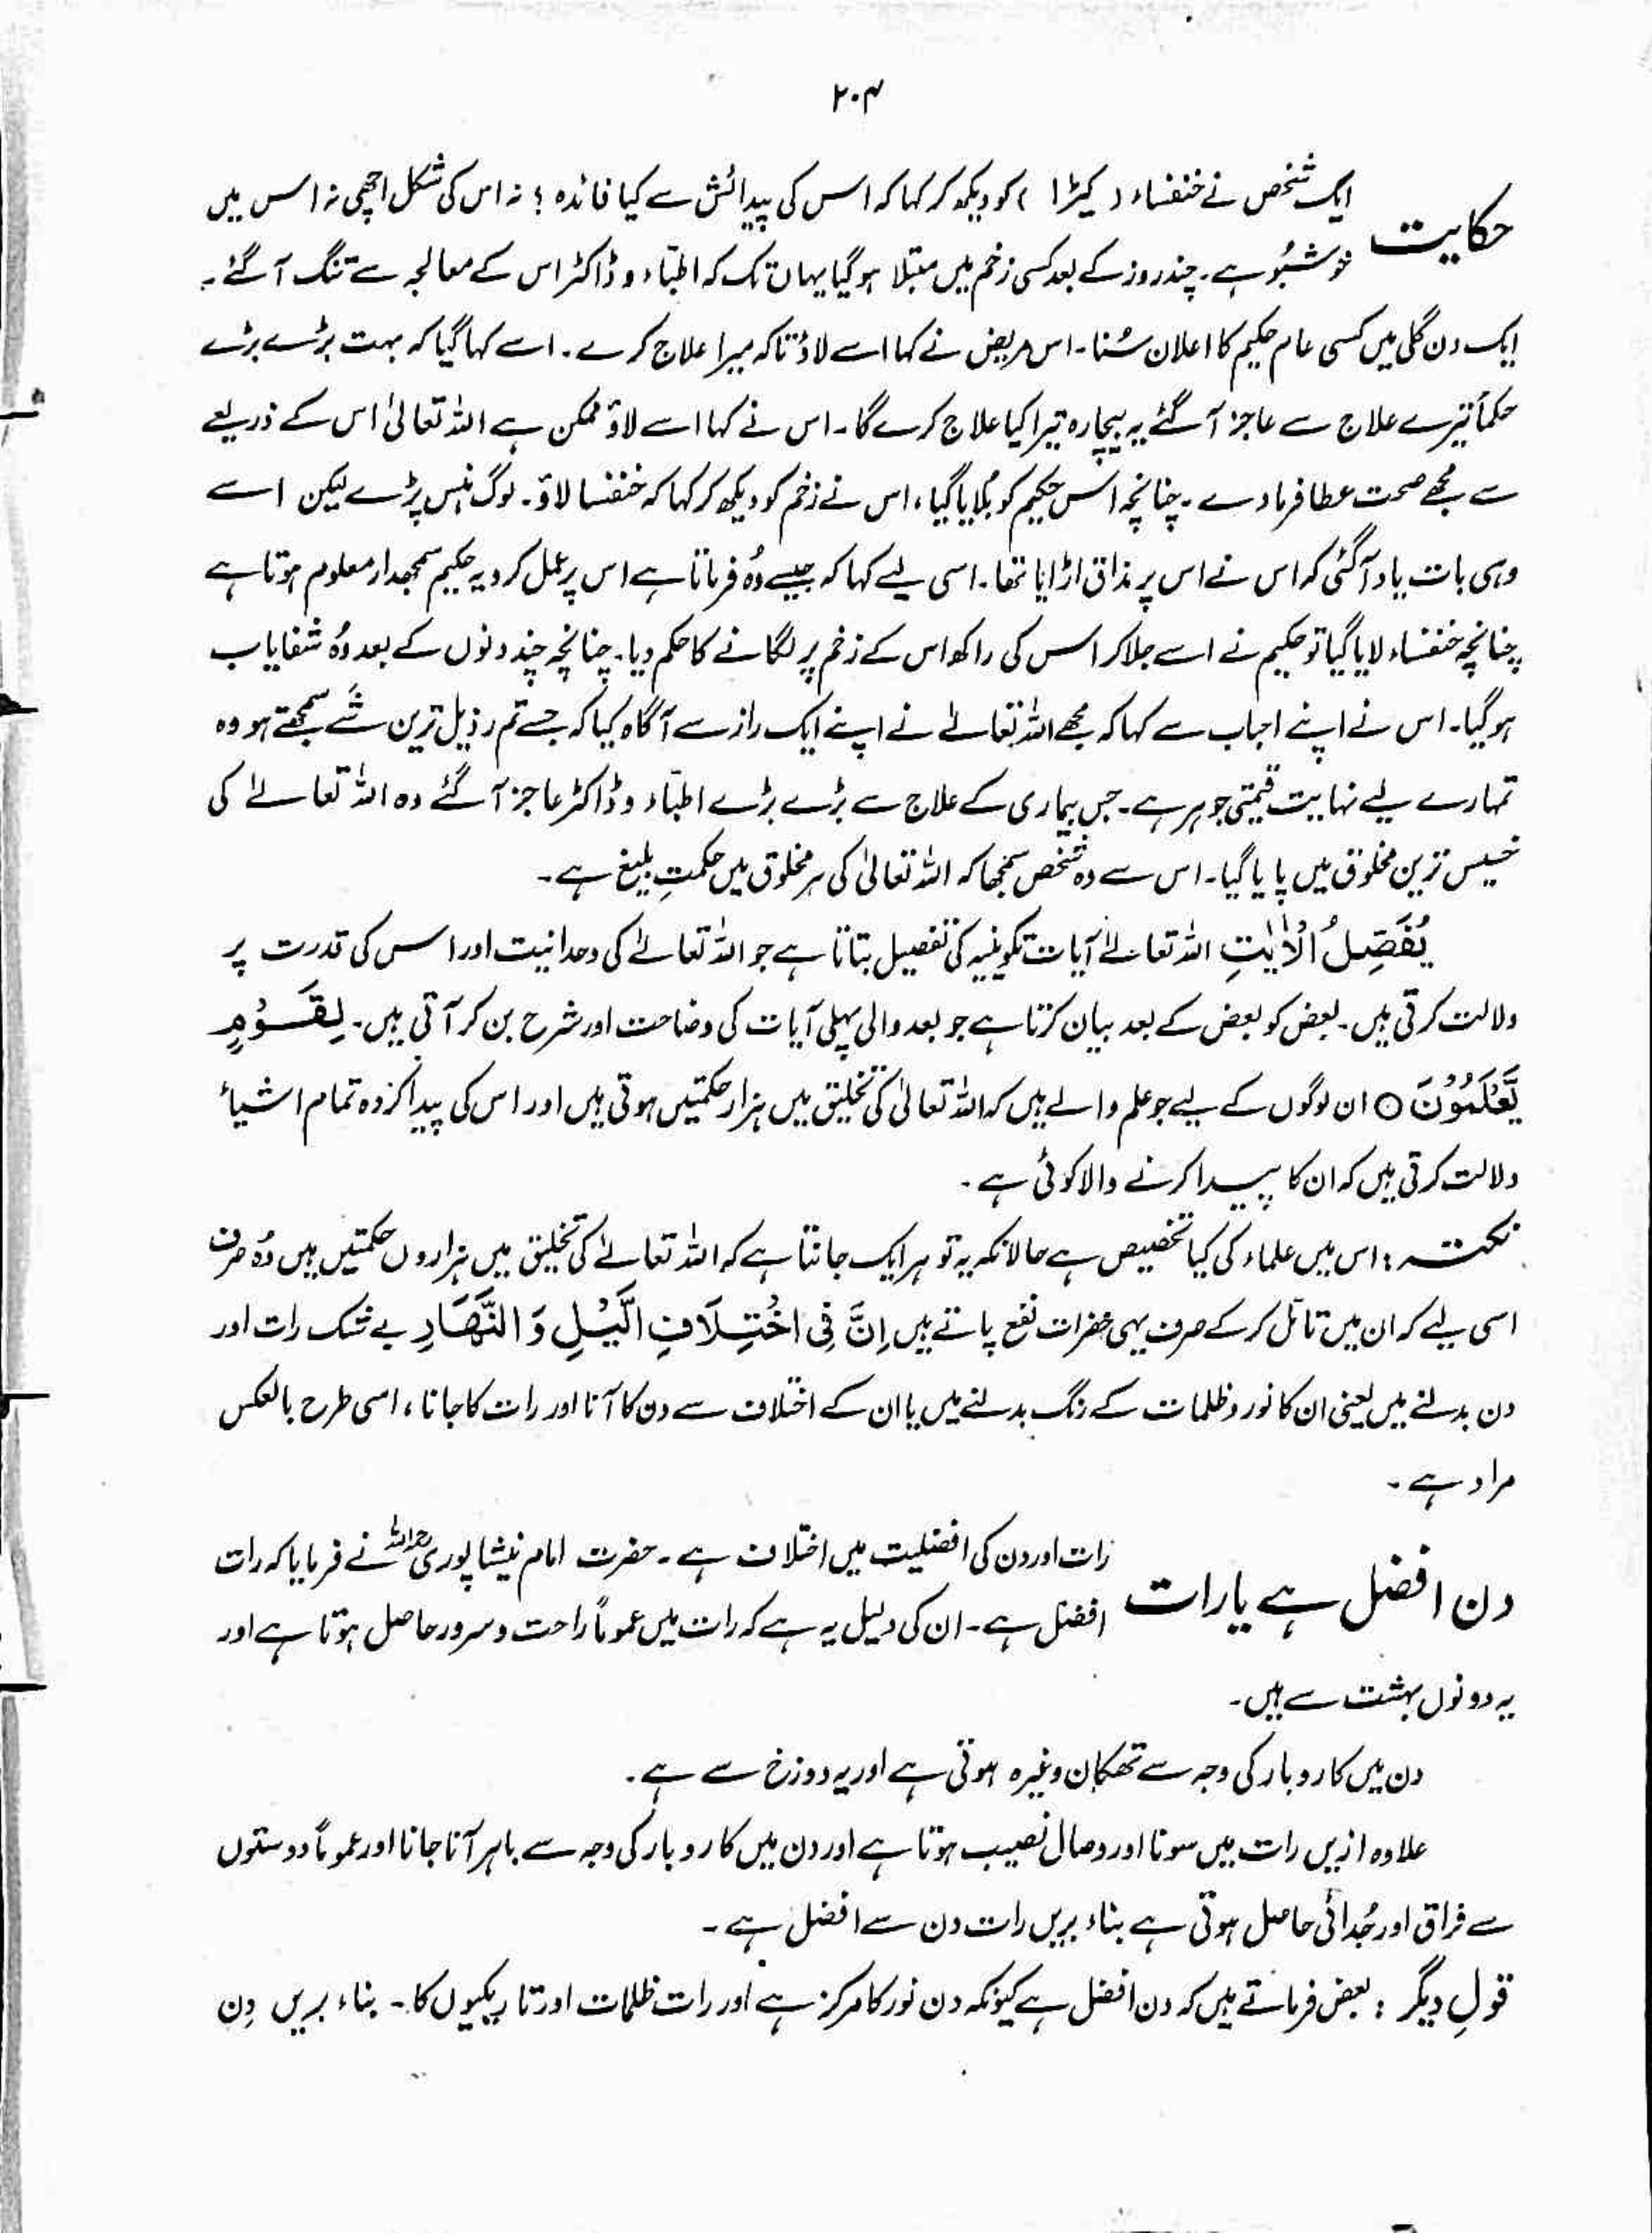 ۲۰۴
حکایت
ایک شخص نے خنفساء (کیڑا) کو دیکھ کر کہا کہ اس کی پیدائش سے کیا فائدہ ؛ نہ اس کی شکل اچھی نہ اس میں
خوشبُو ہے۔ چند روز کے بعد کسی زخم میں مبتلا ہو گیا یہاں تک کہ اطبّاء و ڈاکٹر اس کے معالجہ سے تنگ آ گئے۔
ایک دن گلی میں کسی عام حکیم کا اعلان سُنا۔ اس مریض نے کہا اسے لاؤ تاکہ میرا علاج کرے۔ اسے کہا گیا کہ بہت بڑے بڑے
حکمأ تیرے علاج سے عاجز آ گئے یہ بیچارہ تیرا کیا علاج کرے گا۔ اس نے کہا اسے لاؤ ممکن ہے اللہ تعالیٰ اس کے ذریعے
سے مجھے صحت عطا فرما دے۔ چنانچہ اس حکیم کو بُلایا گیا، اس نے زخم کو دیکھ کر کہا کہ خنفسا لاؤ۔ لوگ ہنس پڑے لیکن اسے
وہی بات یاد آ گئی کہ اس نے اس پر مذاق اڑایا تھا۔ اسی لیے کہا کہ جیسے وُہ فرماتا ہے اس پر عمل کرو یہ حکیم سمجھدار معلوم ہوتا ہے
چنانچہ خنفساء لایا گیا تو حکیم نے اسے جلا کر اس کی راکھ اس کے زخم پر لگانے کا حکم دیا۔ چنانچہ چند دنوں کے بعد وُہ شفایاب
ہو گیا۔ اس نے اپنے احباب سے کہا کہ مجھے اللہ تعالےٰ نے اپنے ایک راز سے آگاہ کیا کہ جسے تم رذیل ترین شَے سمجھتے ہو وہ
تمہارے لیے نہایت قیمتی جوہر ہے۔ جس بیماری کے علاج سے بڑے بڑے اطبّاء و ڈاکٹر عاجز آ گئے وہ اللہ تعالےٰ کی
خسیس ترین مخلوق میں پایا گیا۔ اس سے وہ شخص سمجھا کہ اللہ تعالیٰ کی ہر مخلوق میں حکمتِ بلیغ ہے۔
یُفَصِّلُ الْاٰیٰتِ اللہ تعالےٰ آیات تکوینیہ کی تفصیل بتاتا ہے جو اللہ تعالےٰ کی وحدانیت اور اس کی قدرت پر
دلالت کرتی ہیں۔ بعض کو بعض کے بعد بیان کرتا ہے جو بعد والی پہلی آیات کی وضاحت اور شرح بن کر آتی ہیں۔ لِقَوْمٍ
یَّعْلَمُوْنَ ○ ان لوگوں کے لیے جو علم والے ہیں کہ اللہ تعالیٰ کی تخلیق میں ہزار حکمتیں ہوتی ہیں اور اس کی پیدا کردہ تمام اشیاء
دلالت کرتی ہیں کہ ان کا پیدا کرنے والا کوئی ہے۔
نکتہ : اس میں علماء کی کیا تخصیص ہے حالانکہ یہ تو ہر ایک جانتا ہے کہ اللہ تعالےٰ کی تخلیق میں ہزاروں حکمتیں ہیں وُہ صرف
اسی لیے کہ ان میں تامل کر کے صرف یہی حضرات نفع پاتے ہیں اِنَّ فِی اخْتِلَافِ الَّیْلِ وَ النَّھَارِ بے شک رات اور
دن بدلنے میں یعنی ان کا نور و ظلمات کے رنگ بدلنے میں یا ان کے اختلاف سے دن کا آنا اور رات کا جانا، اسی طرح بالعکس
مراد ہے۔
دن افضل ہے یا رات
رات اور دن کی افضلیت میں اختلاف ہے۔ حضرت امام نیشاپوری رحمہ اللہ نے فرمایا کہ رات
افضل ہے۔ ان کی دلیل یہ ہے کہ رات میں عموماً راحت و سرور حاصل ہوتا ہے اور
یہ دونوں بہشت سے ہیں۔
دن میں کاروبار کی وجہ سے تھکان وغیرہ ہوتی ہے اور یہ دوزخ سے ہے۔
علاوہ ازیں رات میں سونا اور وصال نصیب ہوتا ہے اور دن میں کاروبار کی وجہ سے باہر آنا جانا اور عموماً دوستوں
سے فراق اور جُدائی حاصل ہوتی ہے بناء بریں رات دن سے افضل ہے۔
قولِ دیگر : بعض فرماتے ہیں کہ دن افضل ہے کیونکہ دن نور کا مرکز ہے اور رات ظلمات اور تاریکیوں کا۔ بناء بریں دِن